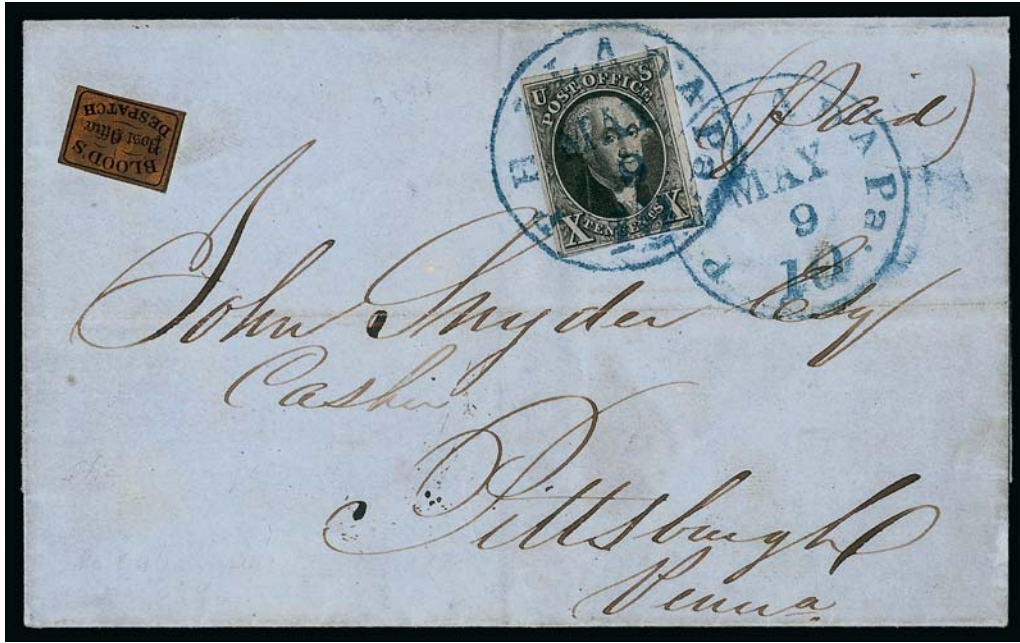 BLOOD'S
Post Office
DESPATCH
U S
POST OFFICE
X TEN CENTS X
PHILADA Pa.
MAY
9
PHILADA Pa.
MAY
9
10
(Paid)
John Snyder Esq
Cashier
Pittsburgh
Penna